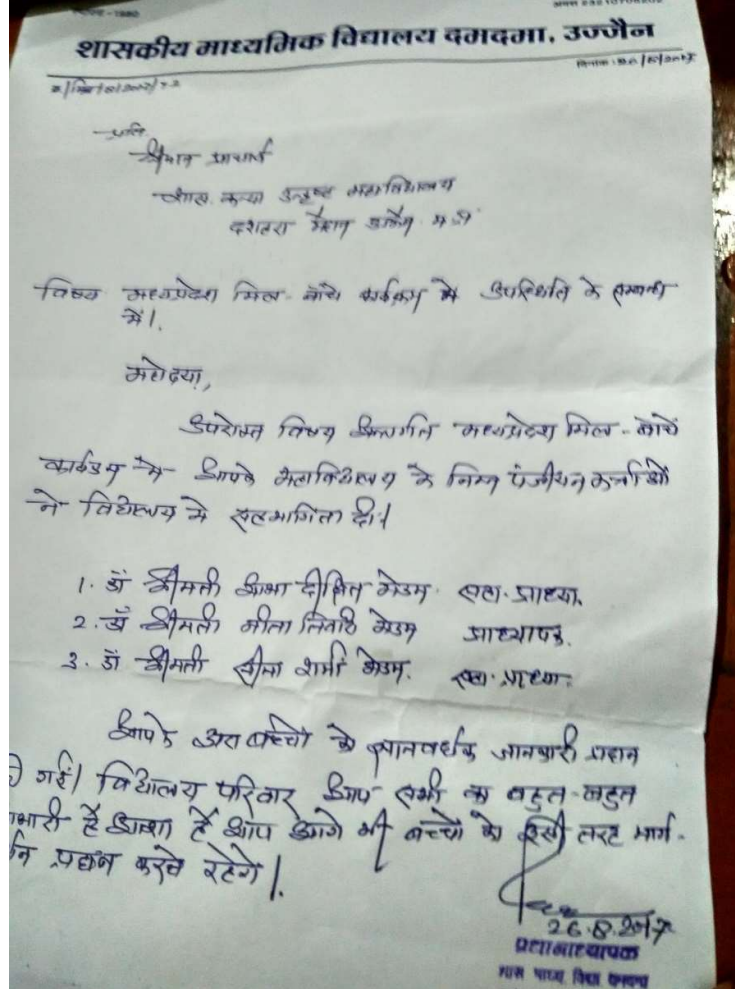 स्थापना - 1980
शासकीय माध्यमिक विद्यालय दमदमा, उज्जैन
दिनांक : 26/8/2017
प्रति,
श्रीमान प्राचार्य
शास. कन्या उत्कृष्ट महाविद्यालय
दशहरा मैदान उज्जैन म.प्र.
विषय मध्यप्रदेश मिल-बांचे कार्यक्रम मे उपस्थिति के सम्बन्ध
में।
महोदया,
उपरोक्त विषय अन्तर्गत मध्यप्रदेश मिल-बांचें
कार्यक्रम मे आपके महाविद्यालय के निम्न पंजीयन कर्त्ताओं
ने विद्यालय मे सहभागिता दी।
1. डॉ श्रीमती आभा दीक्षित मेडम. सहा. प्राध्या.
2. डॉ श्रीमती नीता तिवारी मेडम प्राध्यापक.
3. डॉ श्रीमती सीमा शर्मा मेडम. सहा. प्राध्या.
आपके द्वारा बच्चो को ज्ञानवर्धक जानकारी प्रदान
की गई। विद्यालय परिवार आप सभी का बहुत-बहुत
आभारी है आशा है आप आगे भी बच्चो को इसी तरह मार्ग-
र्शन प्रदान करते रहेगे।
26.8.2017
प्रधानाध्यापक
शास. माध्य. विद्या. दमदमा